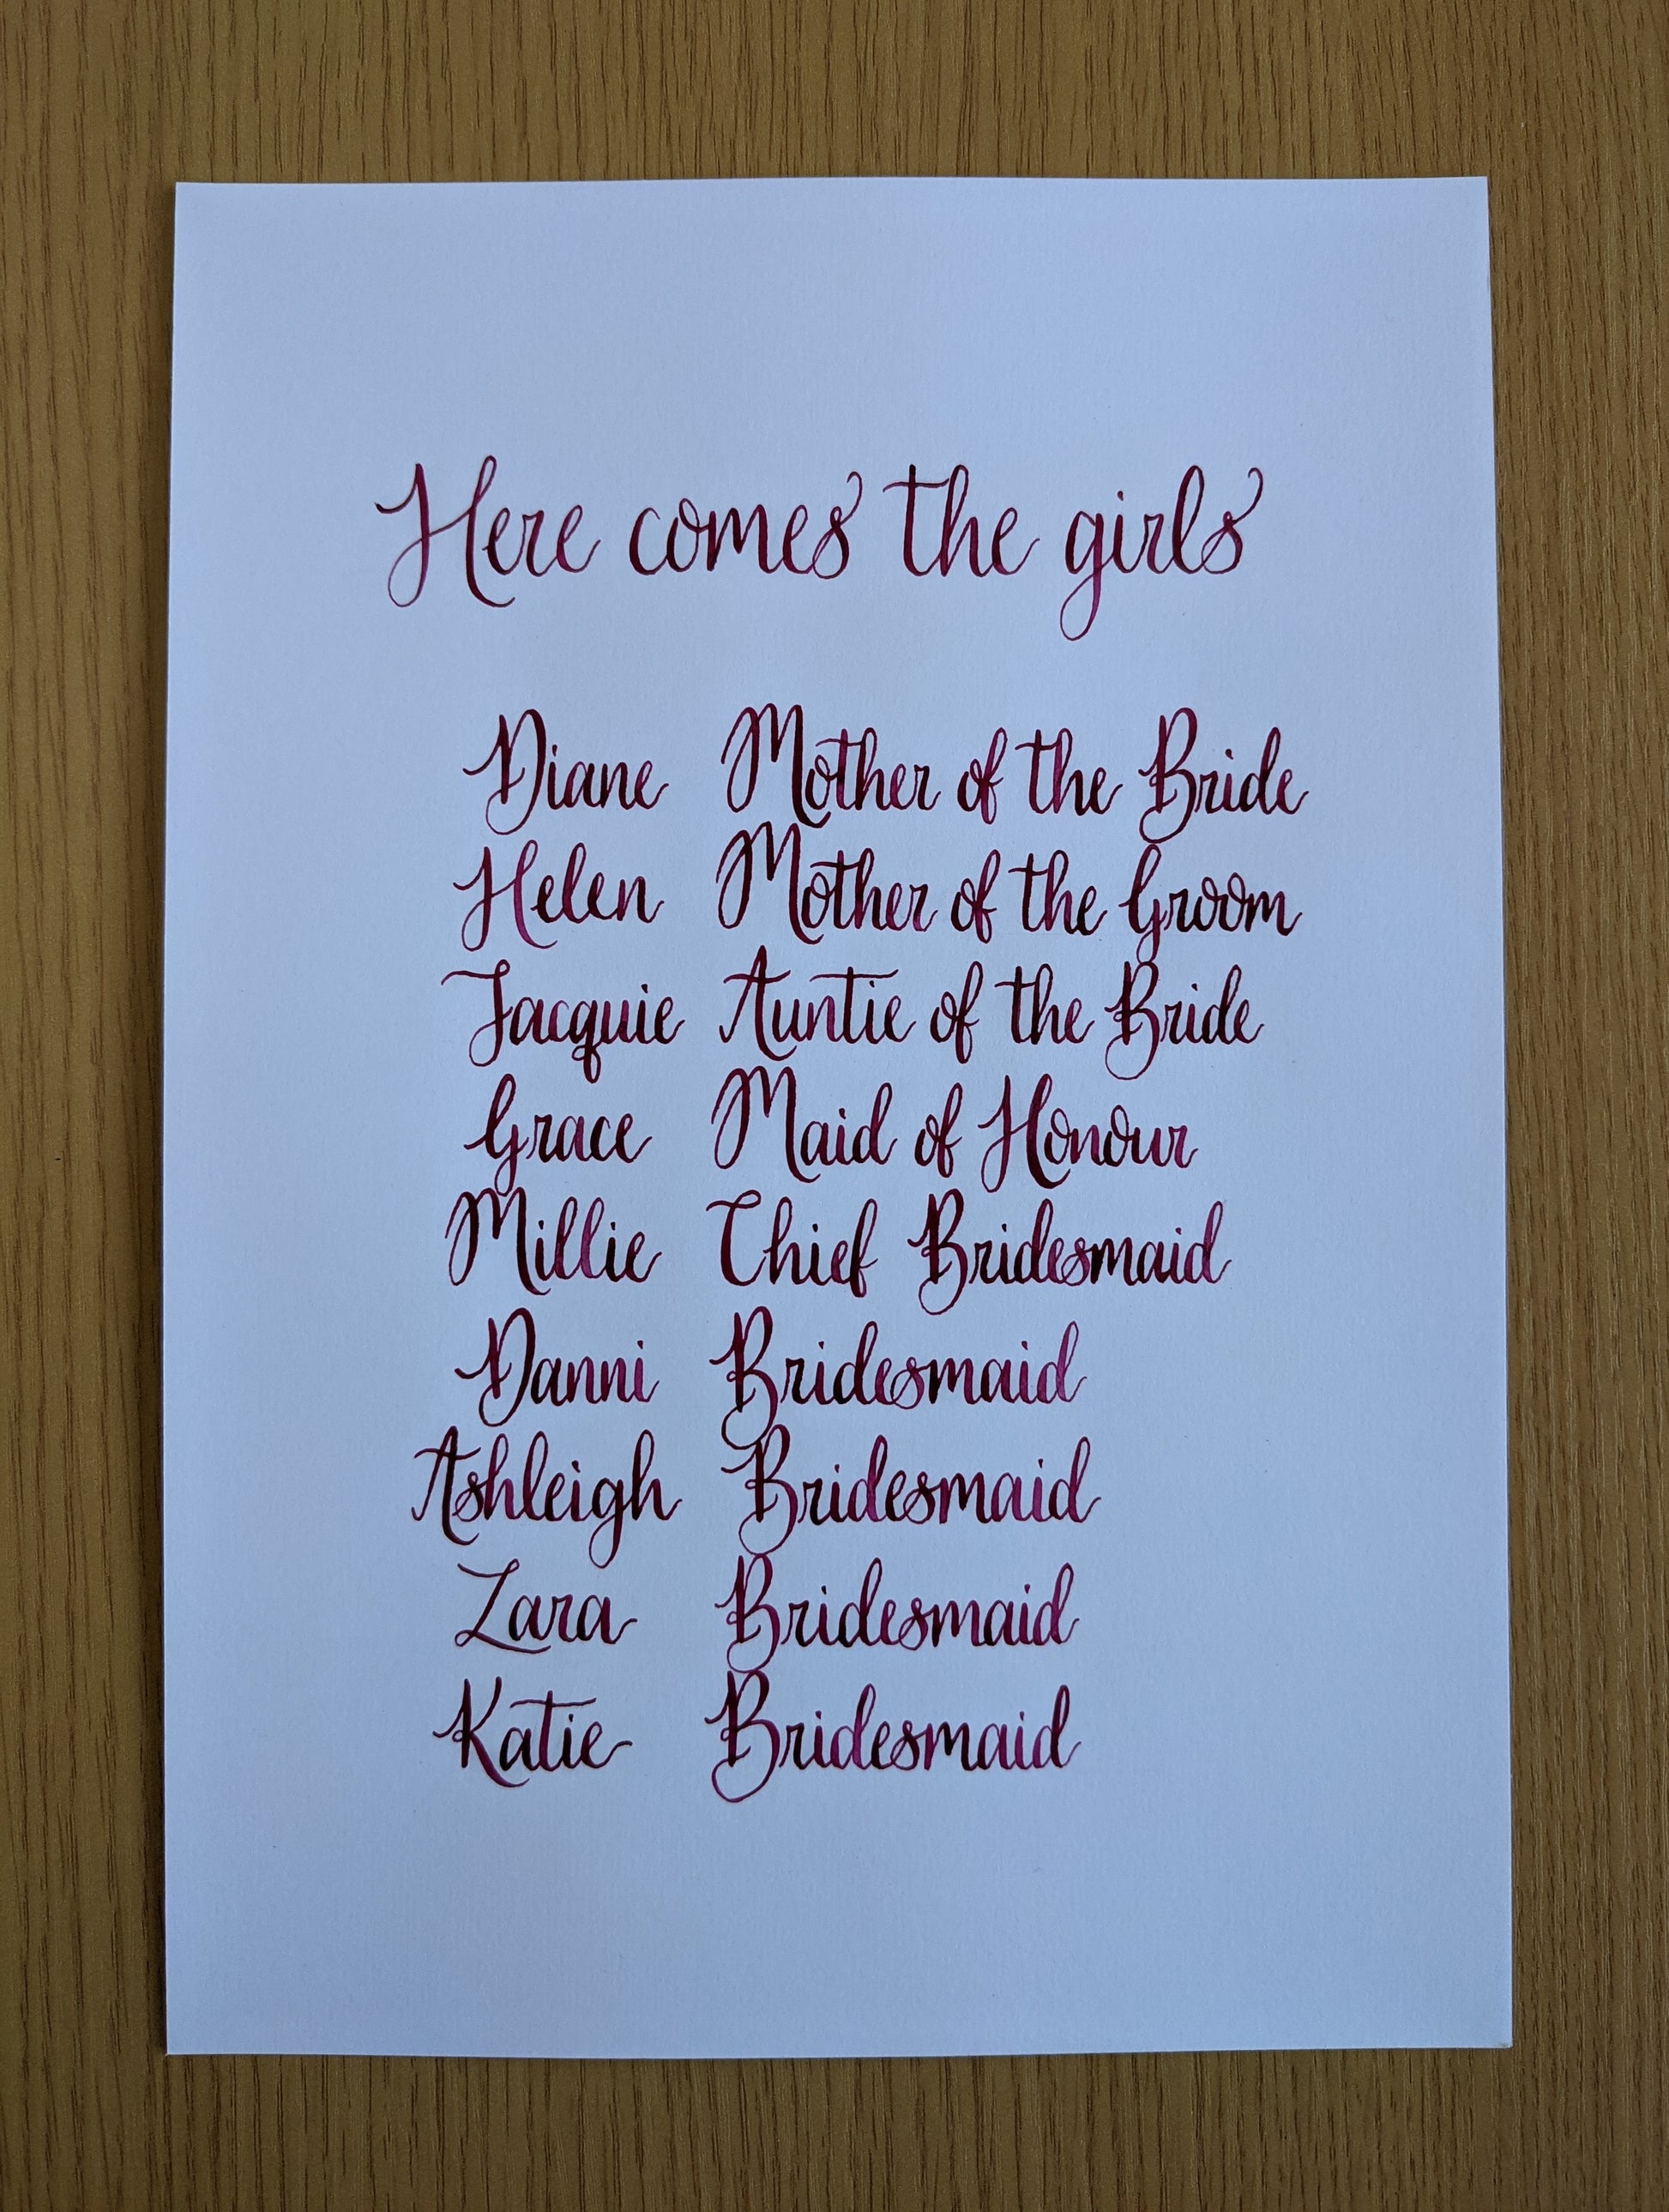 Here comes the girls
Diane Mother of the Bride
Helen Mother of the Groom
Jacquie Auntie of the Bride
Grace Maid of Honour
Millie Chief Bridesmaid
Danni Bridesmaid
Ashleigh Bridesmaid
Zara Bridesmaid
Katie Bridesmaid